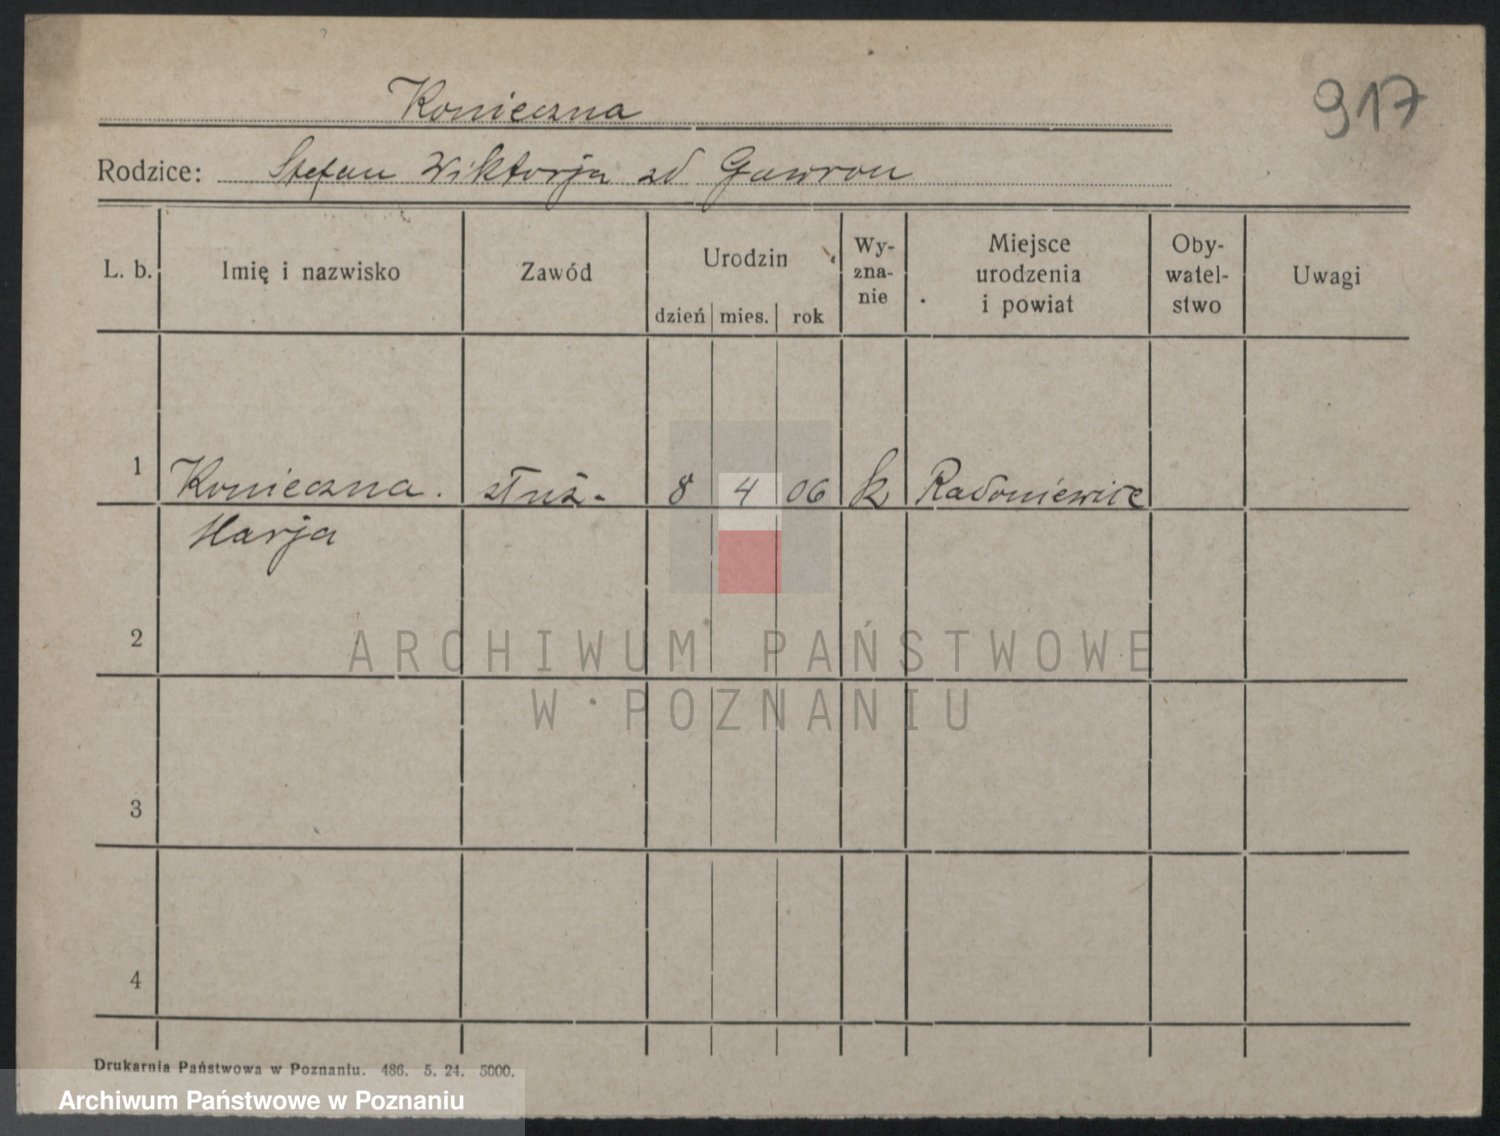 917
Konieczna
Rodzice: Stefan Wiktorja zd Gawron
L. b.
Imię i nazwisko
Zawód
Urodzin
dzień mies. rok
Wy-
zna-
nie
Miejsce
urodzenia
i powiat
Oby-
watel-
stwo
Uwagi
1 Konieczna. służ. 8 4 06 k Radoniewice
Marja
2
3
4
ARCHIWUM PAŃSTWOWE
W POZNANIU
Drukarnia Państwowa w Poznaniu. 486. 5. 24. 5000.
Archiwum Państwowe w Poznaniu